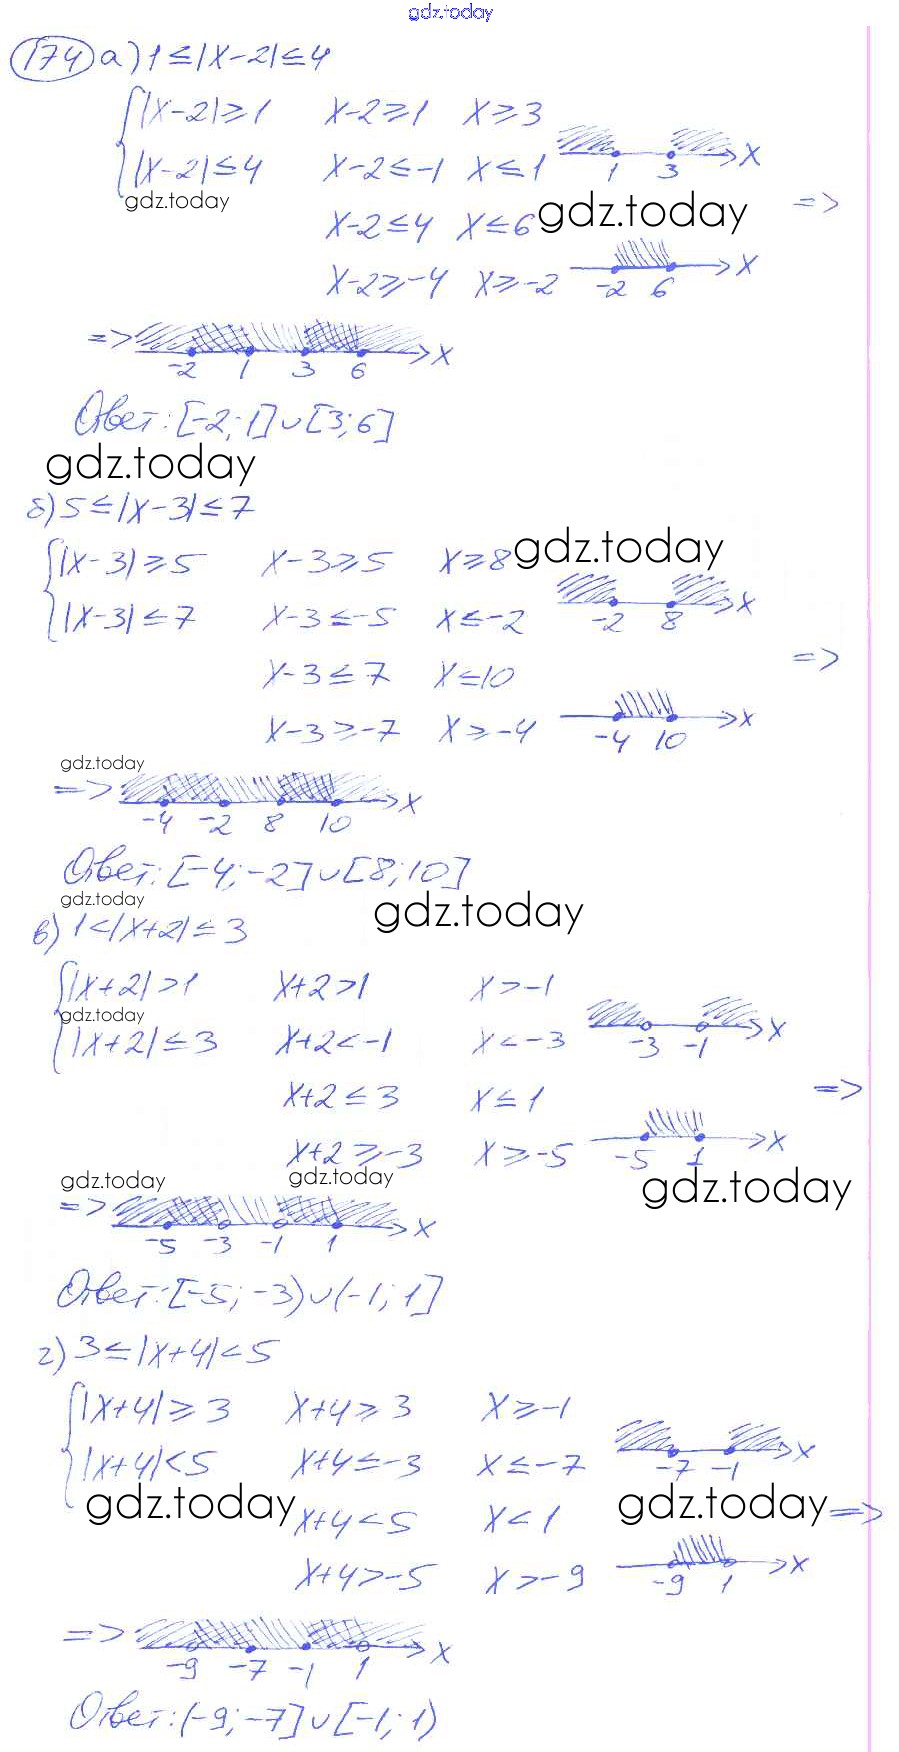 gdz.today
174 а) 1 ≤ |x-2| ≤ 4
|x-2| ≥ 1 x-2 ≥ 1 x ≥ 3
|x-2| ≤ 4 x-2 ≤ -1 x ≤ 1 1 3 x
gdz.today
x-2 ≤ 4 x ≤ 6 gdz.today =>
x-2 ≥ -4 x ≥ -2 -2 6 x
=> -2 1 3 6 x
Ответ: [-2; 1] ∪ [3; 6]
gdz.today
б) 5 ≤ |x-3| ≤ 7
|x-3| ≥ 5 x-3 ≥ 5 x ≥ 8 gdz.today
|x-3| ≤ 7 x-3 ≤ -5 x ≤ -2 -2 8 x
x-3 ≤ 7 x ≤ 10 =>
x-3 ≥ -7 x ≥ -4 -4 10 x
gdz.today
=> -4 -2 8 10 x
Ответ: [-4; -2] ∪ [8; 10]
gdz.today gdz.today
в) 1 < |x+2| ≤ 3
|x+2| > 1 x+2 > 1 x > -1
gdz.today
|x+2| ≤ 3 x+2 < -1 x < -3 -3 -1 x
x+2 ≤ 3 x ≤ 1 =>
x+2 ≥ -3 x ≥ -5 -5 1 x
gdz.today gdz.today gdz.today
=> -5 -3 -1 1 x
Ответ: [-5; -3) ∪ (-1; 1]
г) 3 ≤ |x+4| < 5
|x+4| ≥ 3 x+4 ≥ 3 x ≥ -1
|x+4| < 5 x+4 ≤ -3 x ≤ -7 -7 -1 x
gdz.today x+4 < 5 x < 1 gdz.today =>
x+4 > -5 x > -9 -9 1 x
=> -9 -7 -1 1 x
Ответ: (-9; -7] ∪ [-1; 1)